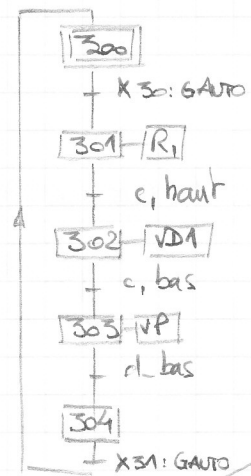 300
X30: GAUTO
301 R1
c, haut
302 VD1
c, bas
303 VP
d_bas
304
X31: GAUTO